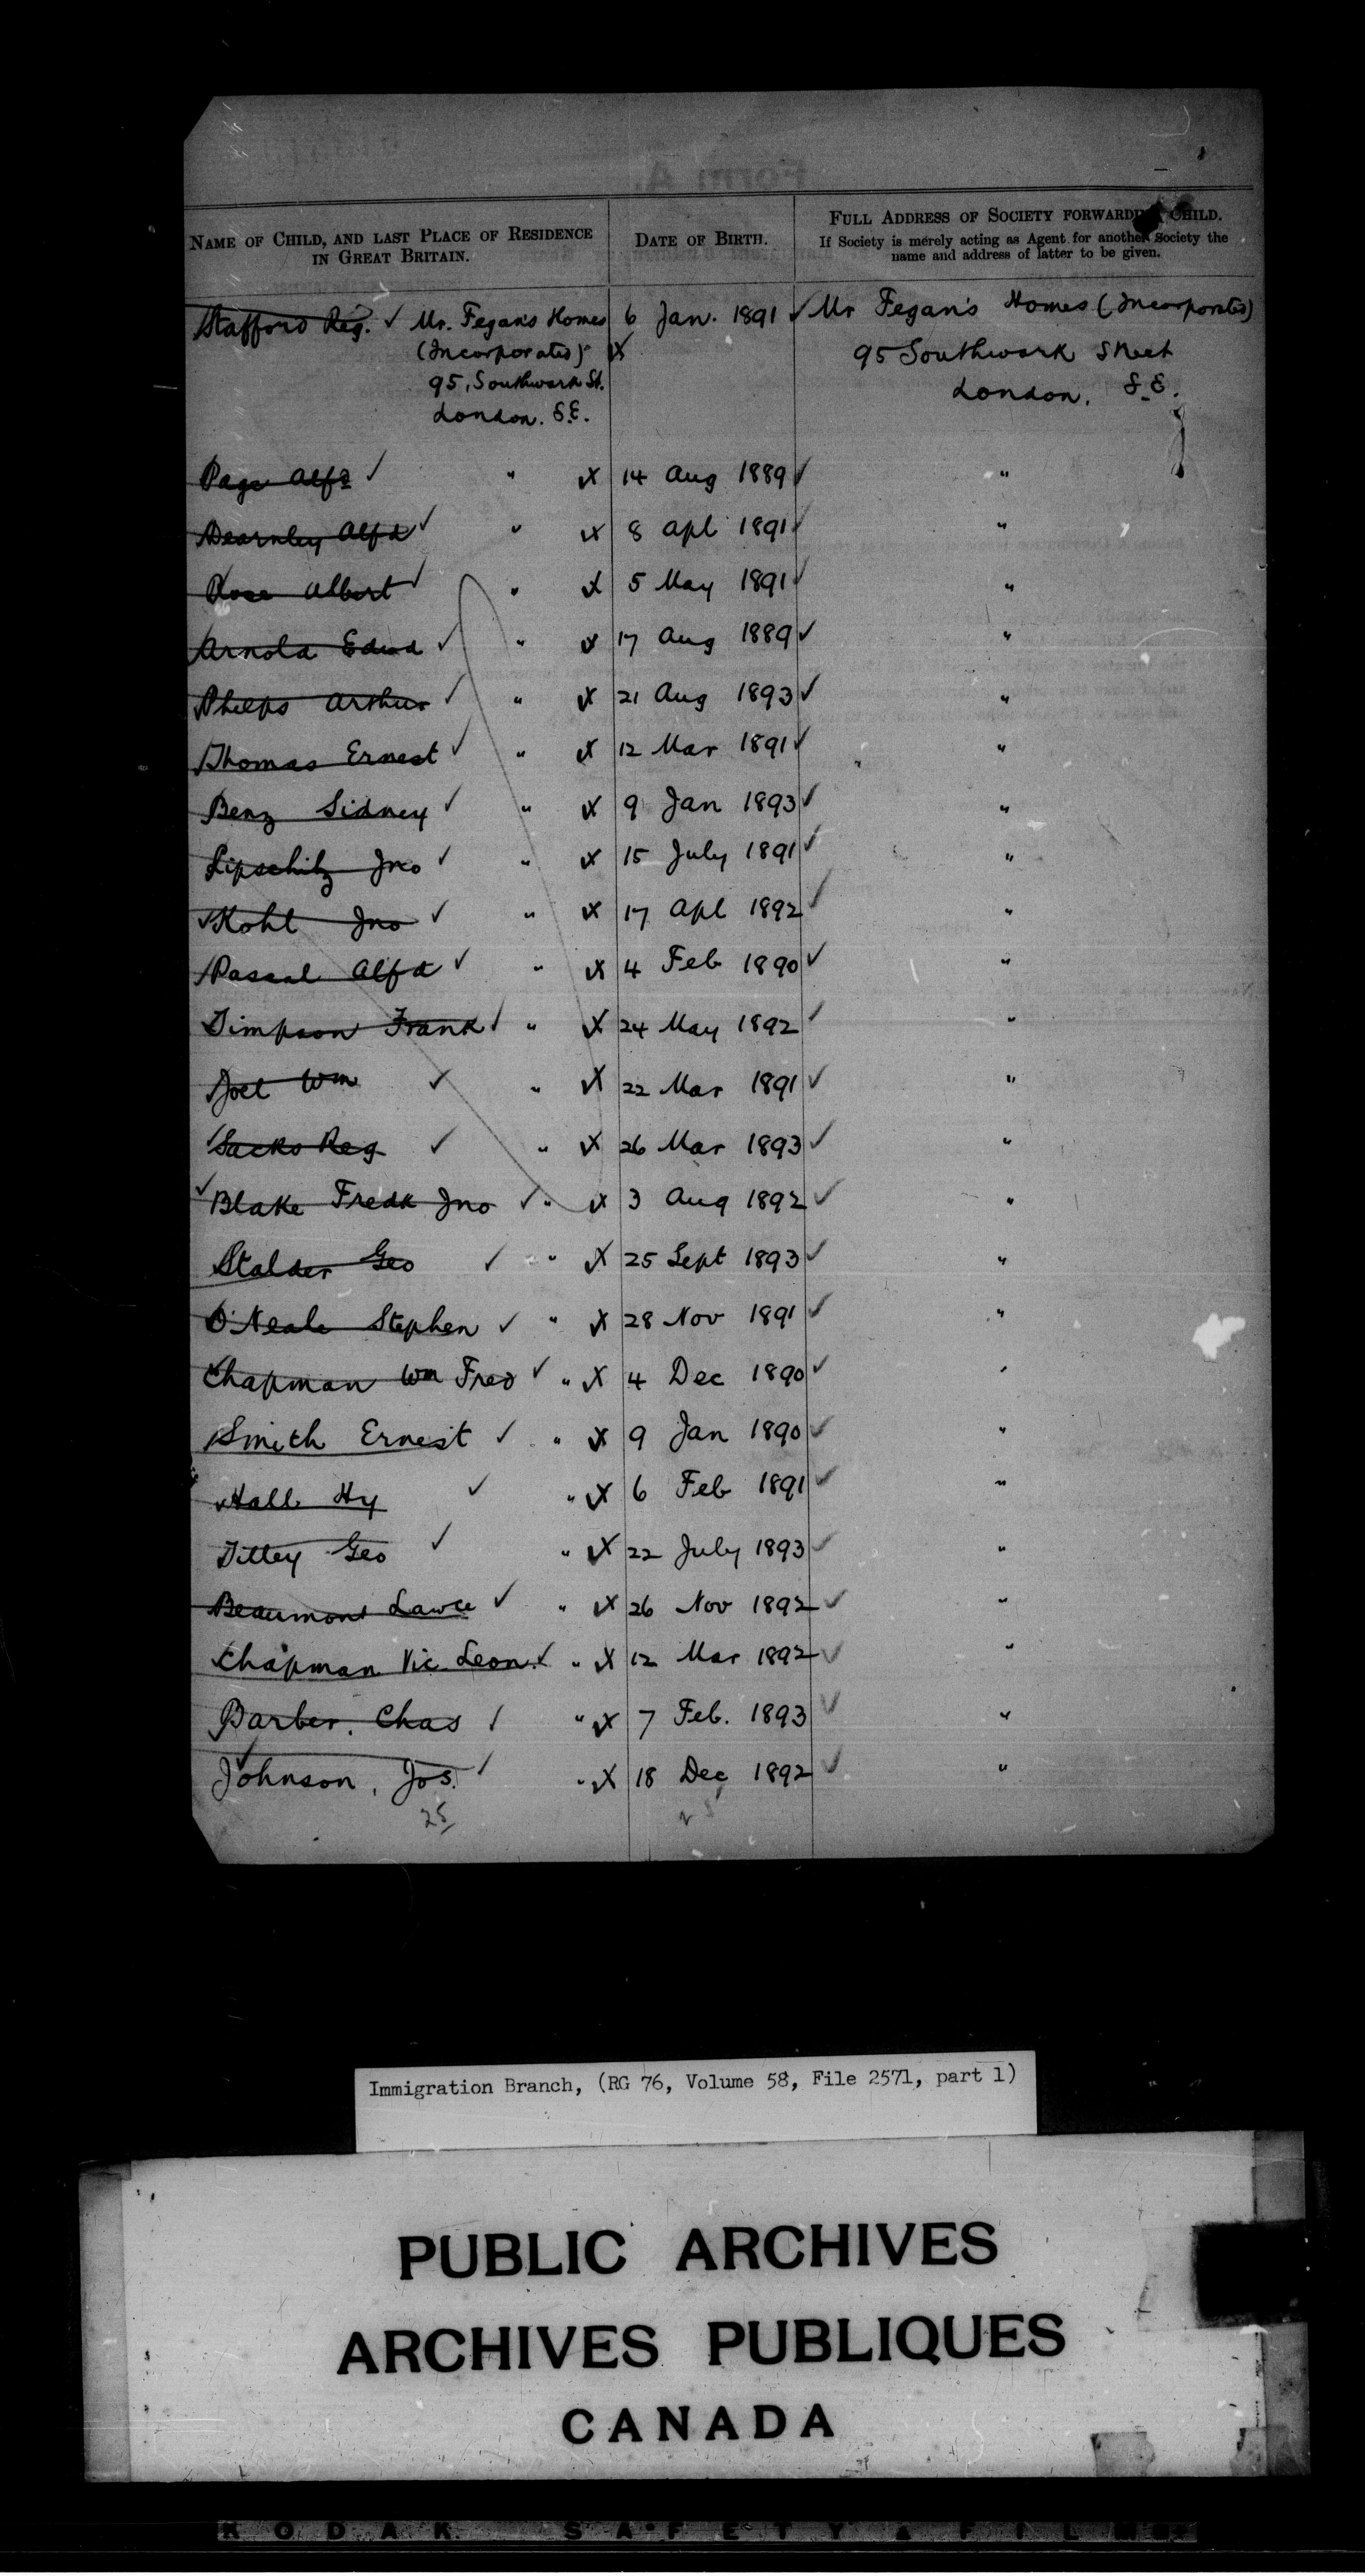 NAME OF CHILD, AND LAST PLACE OF RESIDENCE IN GREAT BRITAIN.
DATE OF BIRTH.
FULL ADDRESS OF SOCIETY FORWARDING CHILD.
If Society is merely acting as Agent for another Society the name and address of latter to be given.
Stafford Reg. ✓ Mr. Fegan's Homes 6 Jan. 1891 ✓ Mr Fegan's Homes (Incorporated)
(Incorporated) X 95 Southwark Street
95, Southwark St. London, S.E.
London. S.E.
Page Alfd ✓ " X 14 Aug 1889 ✓ "
Dearnley Alfd ✓ " X 8 Apl 1891 ✓ "
Rose Albert ✓ " X 5 May 1891 ✓ "
Arnold Edwd ✓ " X 17 Aug 1889 ✓ "
Phelps Arthur ✓ " X 21 Aug 1893 ✓ "
Thomas Ernest ✓ " X 12 Mar 1891 ✓ "
Benz Sidney ✓ " X 9 Jan 1893 ✓ "
Lipschitz Jno ✓ " X 15 July 1891 ✓ "
Kohl Jno ✓ " X 17 Apl 1892 ✓ "
Pascal Alfd ✓ " X 4 Feb 1890 ✓ "
Timpson Frank ✓ " X 24 May 1892 ✓ "
Joel Wm ✓ " X 22 Mar 1891 ✓ "
Sacks Reg ✓ " X 26 Mar 1893 ✓ "
Blake Fredk Jno ✓ " X 3 Aug 1892 ✓ "
Stalder Geo ✓ " X 25 Sept 1893 ✓ "
O'Neale Stephen ✓ " X 28 Nov 1891 ✓ "
Chapman Wm Fred ✓ " X 4 Dec 1890 ✓ "
Smith Ernest ✓ " X 9 Jan 1890 ✓ "
Hall Hy ✓ " X 6 Feb 1891 ✓ "
Tilley Geo ✓ " X 22 July 1893 ✓ "
Beaumont Lawce ✓ " X 26 Nov 1892 ✓ "
Chapman Vic. Leon. ✓ " X 12 Mar 1892 ✓ "
Barber. Chas ✓ " X 7 Feb. 1893 ✓ "
Johnson, Jos. ✓ " X 18 Dec 1892 ✓ "
25
Immigration Branch, (RG 76, Volume 58, File 2571, part 1)
PUBLIC ARCHIVES
ARCHIVES PUBLIQUES
CANADA
KODAK SAFETY FILM